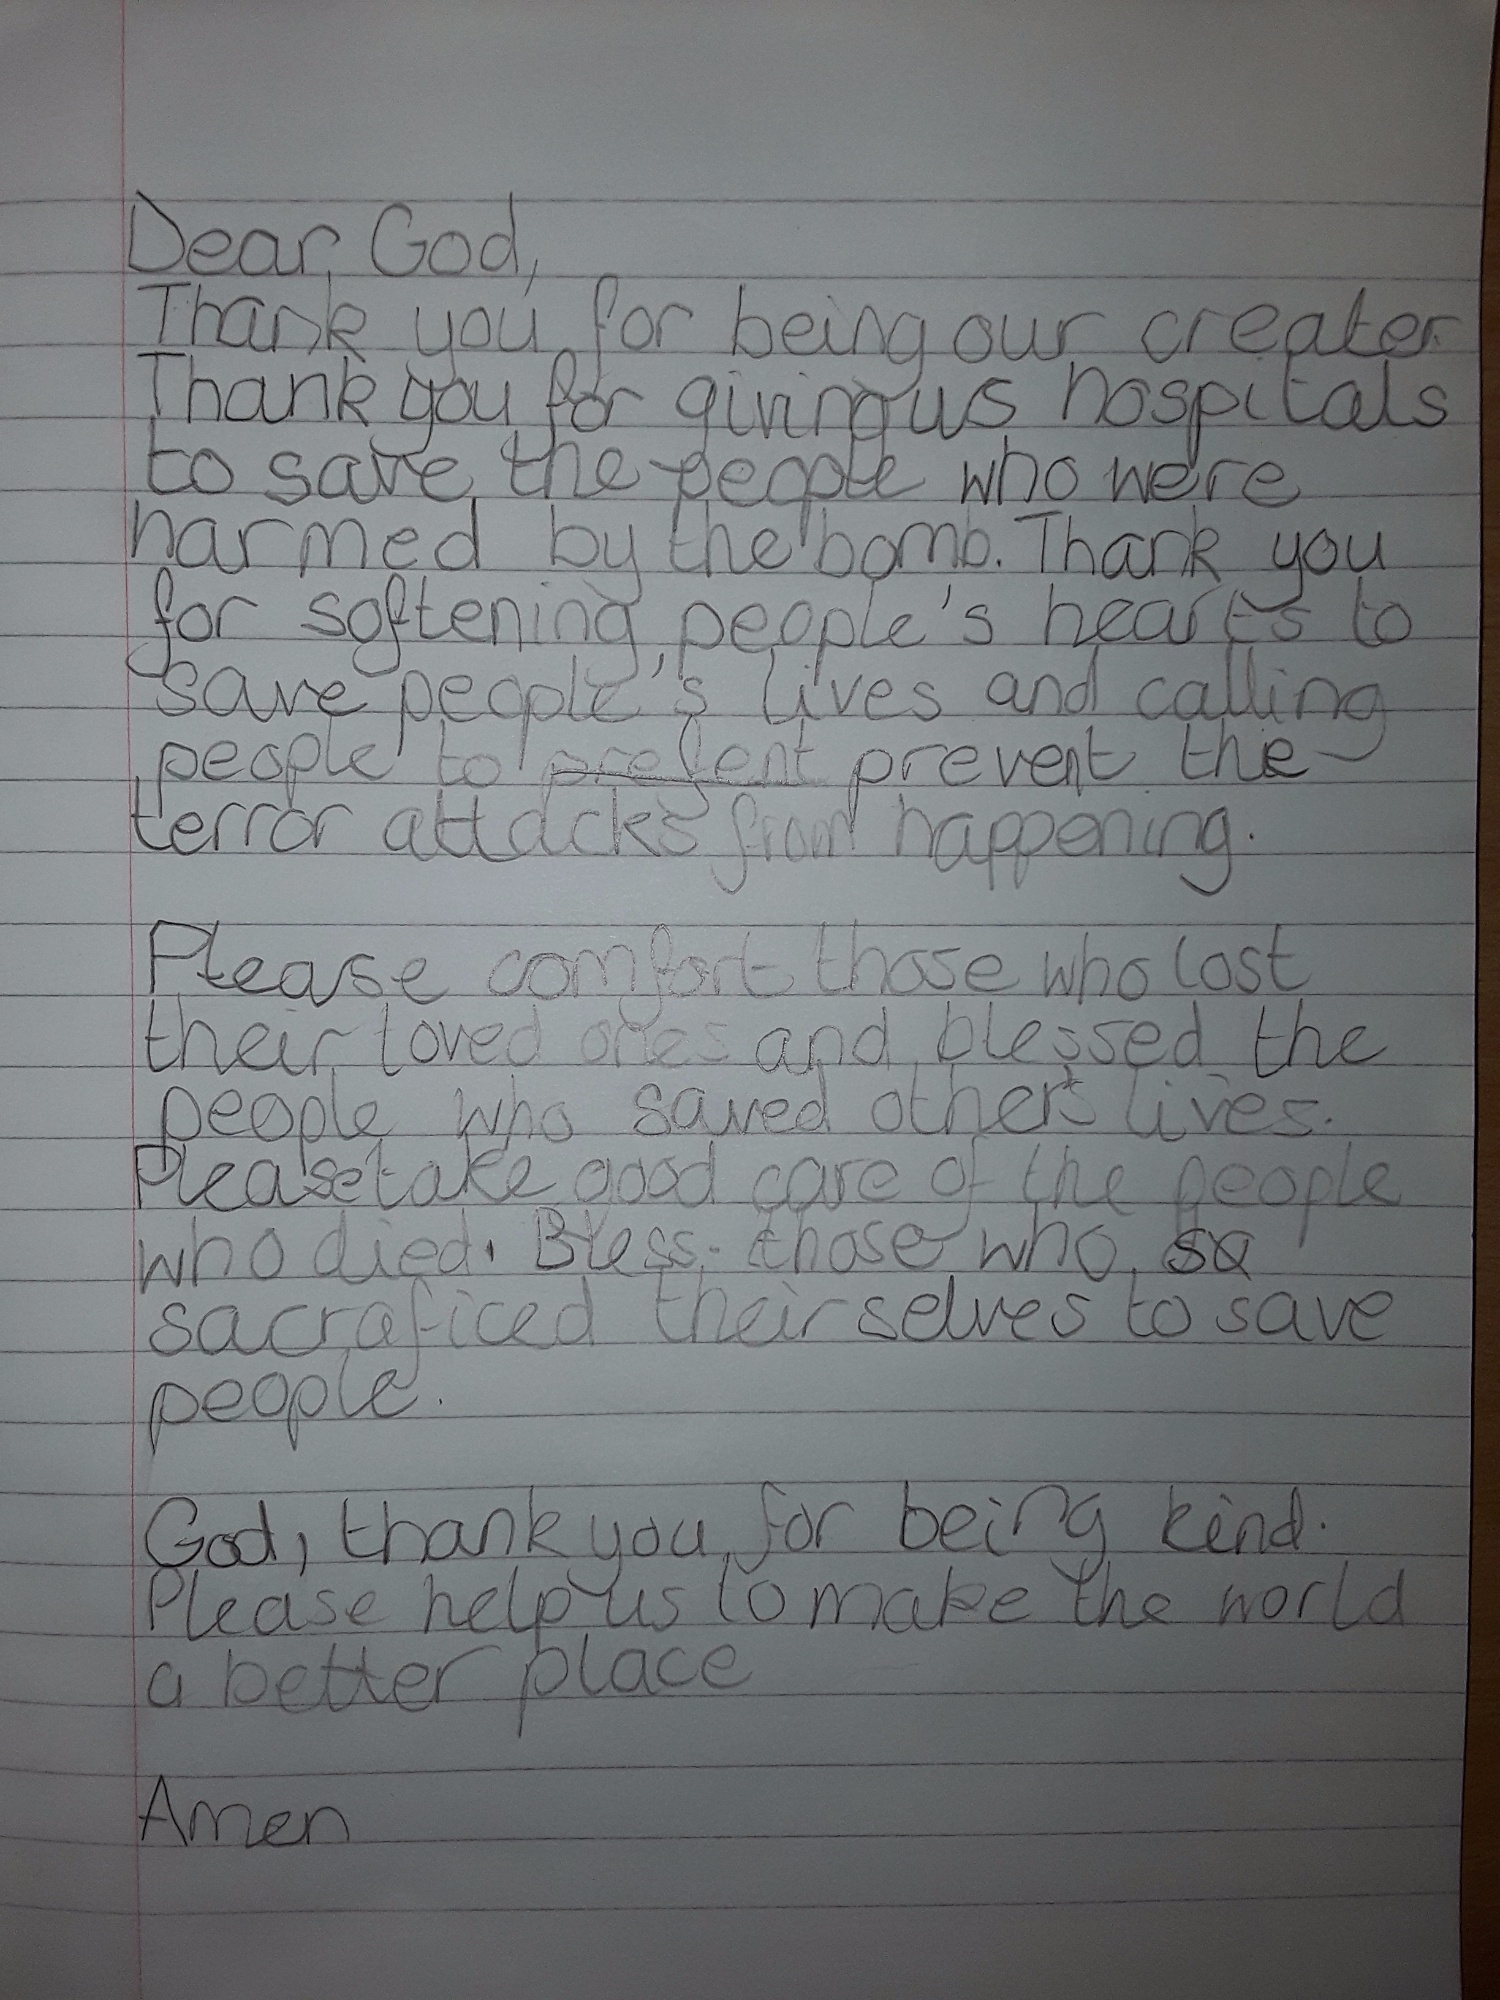 Dear God,
Thank you for being our creater.
Thank you for giving us hospitals
to save the people who were
harmed by the bomb. Thank you
for softening people's hearts to
save people's lives and calling
people to prefent prevent the
terror attacks from happening.
Please comfort those who lost
their loved ones and blessed the
people who saved other's lives.
Please take good care of the people
who died. Bless those who sa
sacraficed theirselves to save
people.
God, thank you for being kind.
Please help us to make the world
a better place
Amen